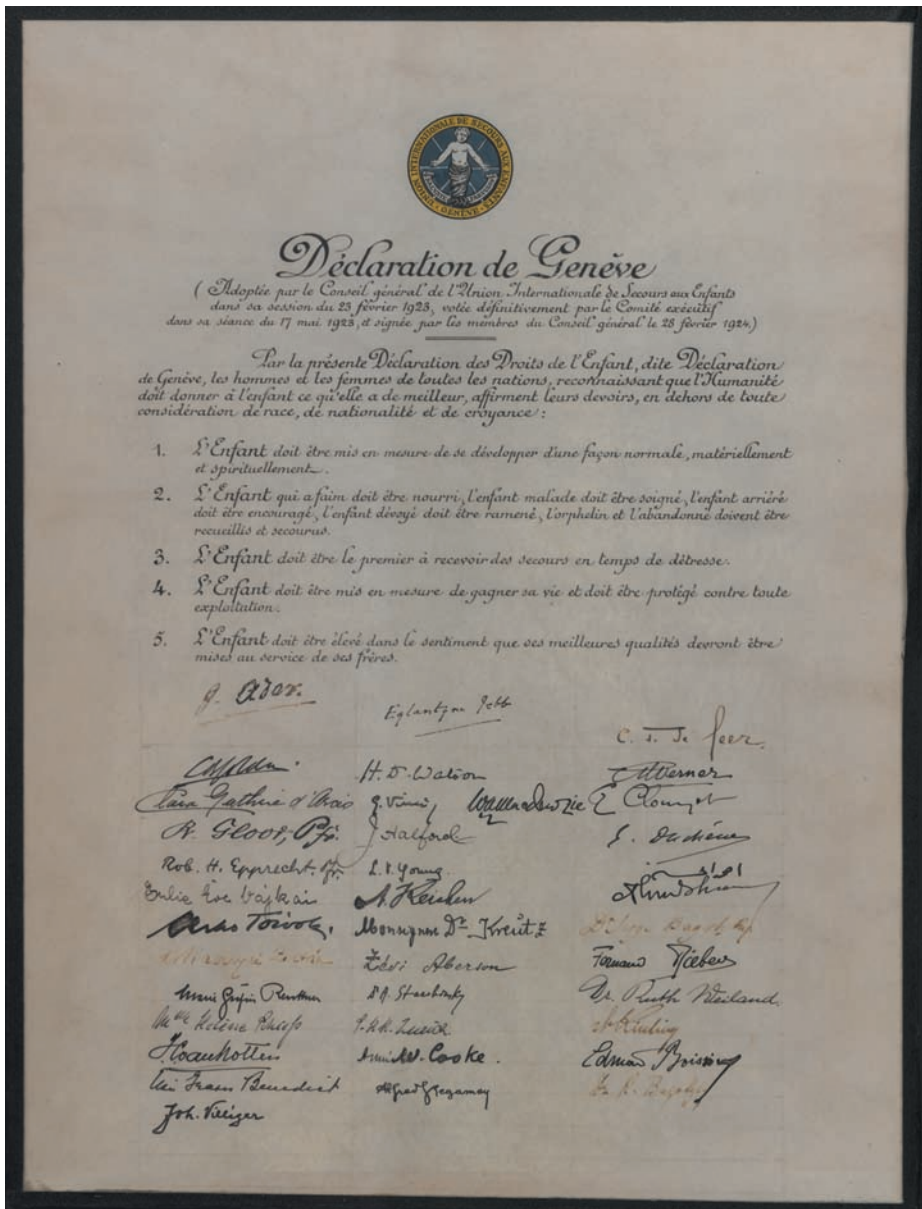 UNION INTERNATIONALE DE SECOURS AUX ENFANTS
· GENÈVE ·
Déclaration de Genève
( Adoptée par le Conseil général de l'Union Internationale de Secours aux Enfants
dans sa session du 23 février 1923, votée définitivement par le Comité exécutif
dans sa séance du 17 mai 1923, et signée par les membres du Conseil général le 28 février 1924.)
Par la présente Déclaration des Droits de l'Enfant, dite Déclaration
de Genève, les hommes et les femmes de toutes les nations, reconnaissant que l'Humanité
doit donner à l'enfant ce qu'elle a de meilleur, affirment leurs devoirs, en dehors de toute
considération de race, de nationalité et de croyance :
1. L'Enfant doit être mis en mesure de se développer d'une façon normale, matériellement
et spirituellement.
2. L'Enfant qui a faim doit être nourri, l'enfant malade doit être soigné, l'enfant arriéré
doit être encouragé, l'enfant dévoyé doit être ramené, l'orphelin et l'abandonné doivent être
recueillis et secourus.
3. L'Enfant doit être le premier à recevoir des secours en temps de détresse.
4. L'Enfant doit être mis en mesure de gagner sa vie et doit être protégé contre toute
exploitation.
5. L'Enfant doit être élevé dans le sentiment que ses meilleures qualités devront être
mises au service de ses frères.
G. Ador.
Eglantyne Jebb
H. D. Watson
Werner
Clouzot
R. Gloor, Pfr.
J Halford
Rob. H. Epprecht. Pfr.
L. V. Young.
Julie Eve Vajkai
Arno Toivola,
Monsignore Dr Kreutz
Zévi Aberson
Dr. Ruth Weiland.
Mme Hélène
Cooke.
Edmond Boissier
Benedict
Alfred Gregamey
Joh. Villiger